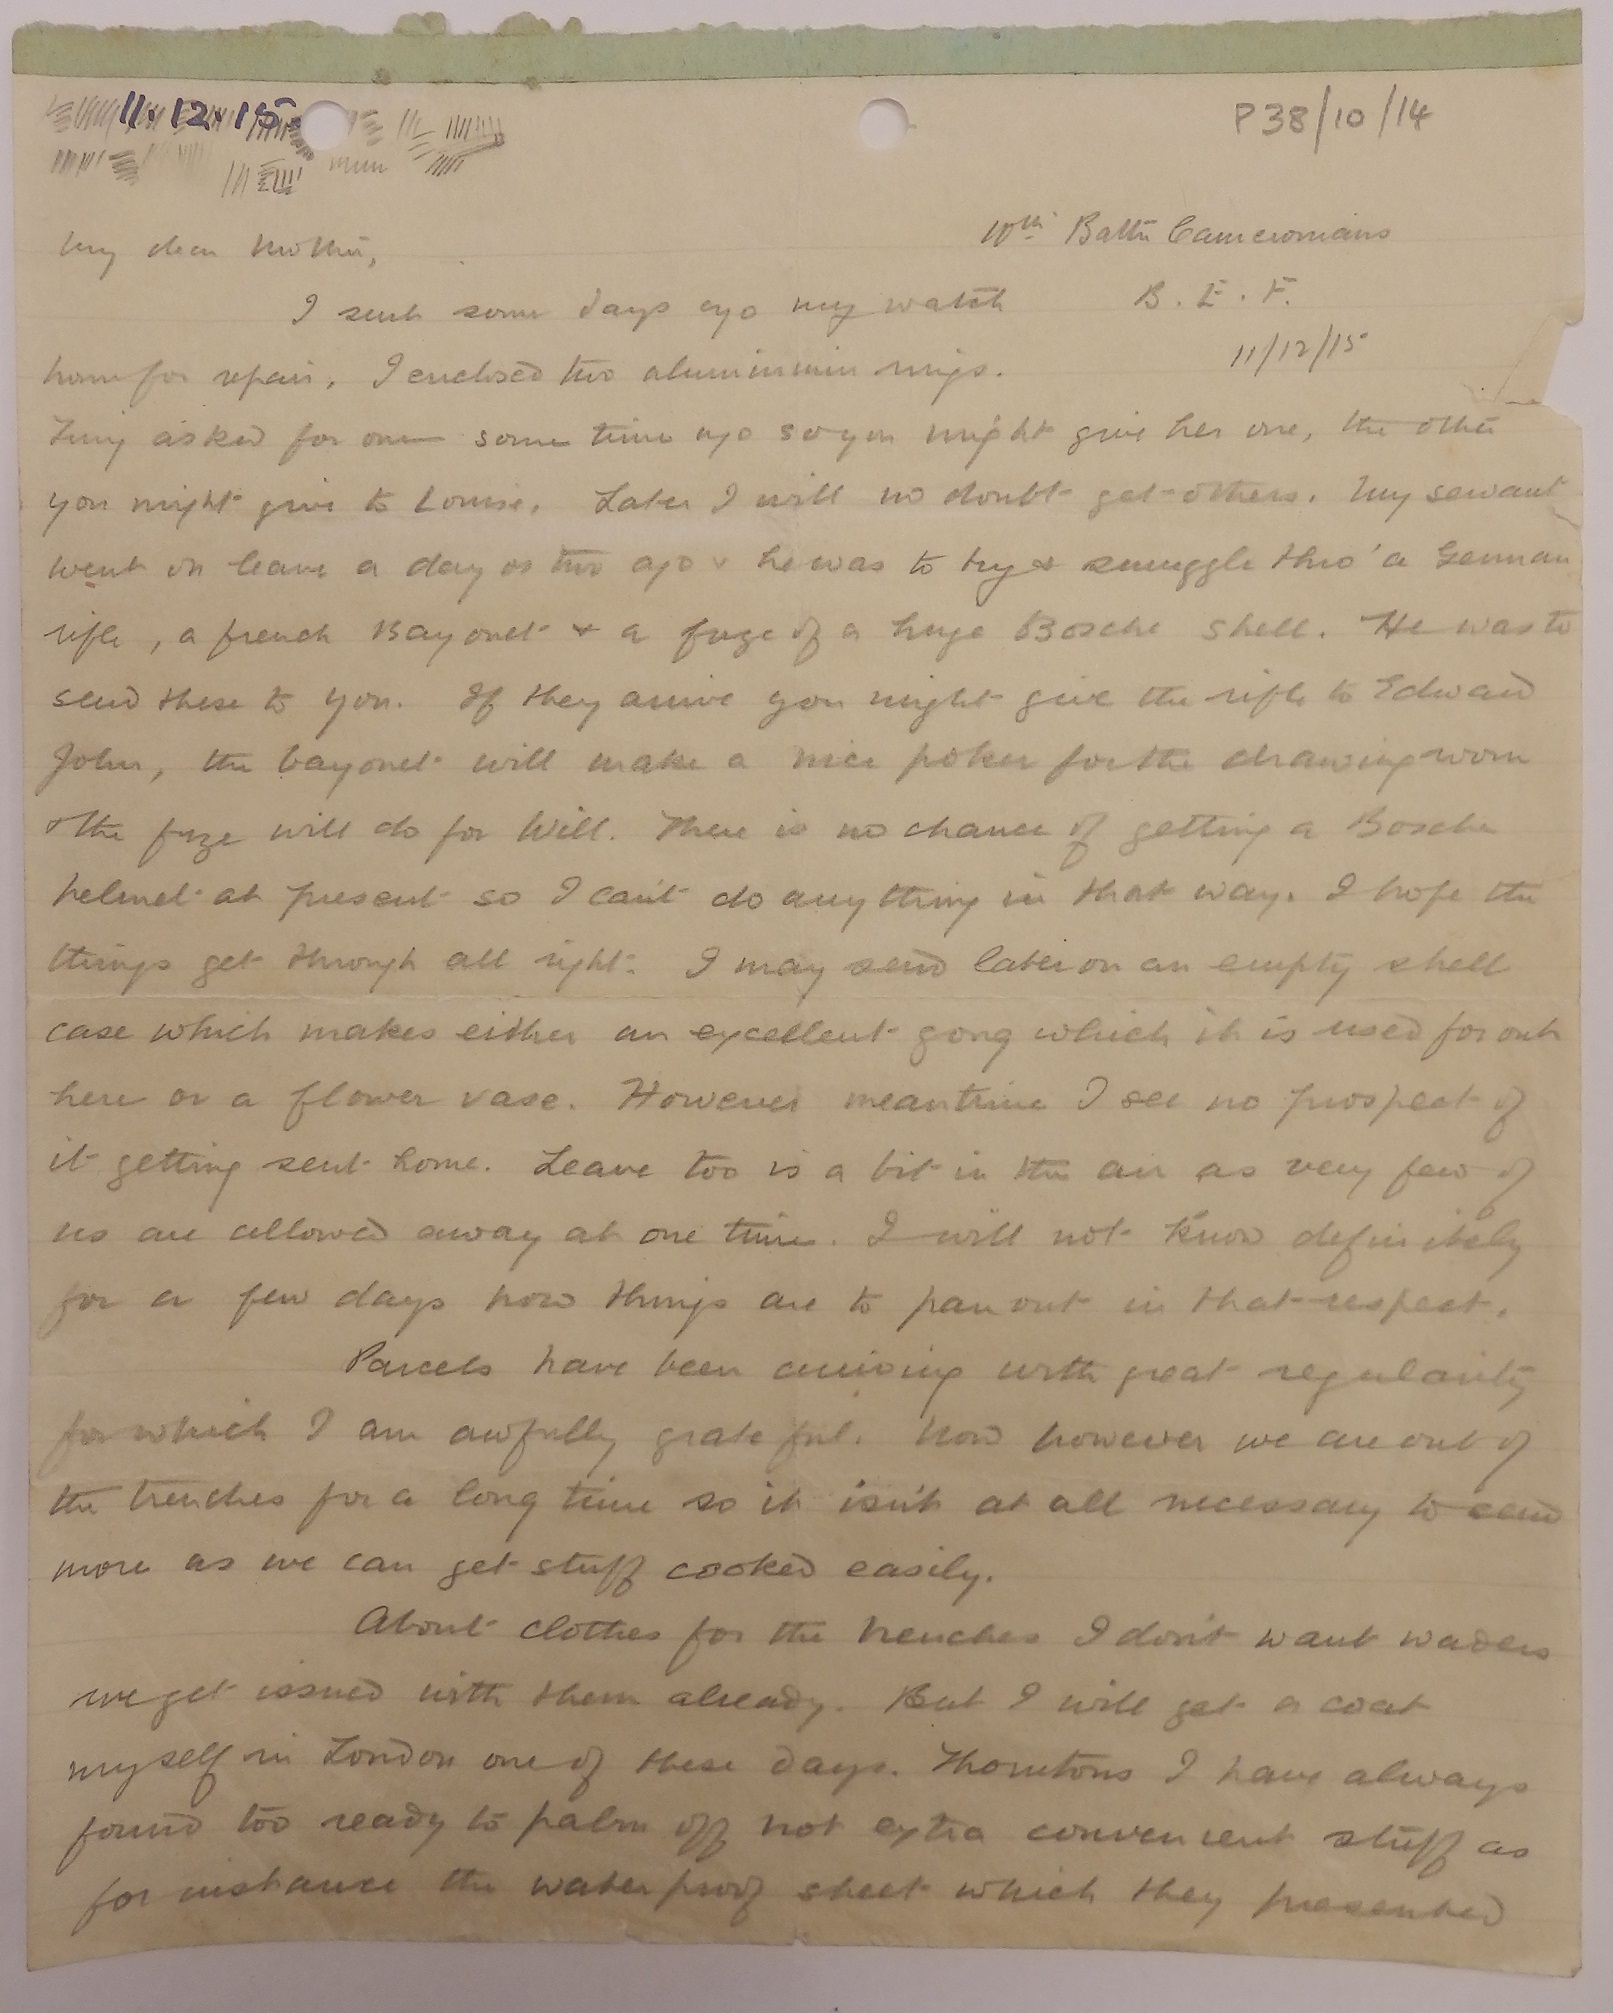 11.12.15
P38/10/14
10th Battn Cameronians
My dear Mother,
B. E. F.
I sent some days ago my watch
11/12/15
home for repair. I enclosed two aluminium rings.
asked for one some time ago so you might give her one, the other
you might give to Louise. Later I will no doubt get others. My servant
went on leave a day or two ago & he was to try & smuggle thro' a German
rifle, a french Bayonet & a fuze of a huge Bosche shell. He was to
send these to you. If they arrive you might give the rifle to Edward
John, the bayonet will make a nice poker for the drawing room
& the fuze will do for Will. There is no chance of getting a Bosche
helmet at present so I can't do anything in that way. I hope the
things get through all right. I may send later on an empty shell
case which makes either an excellent gong which it is used for out
here or a flower vase. However meantime I see no prospect of
it getting sent home. Leave too is a bit in the air as very few of
us are allowed away at one time. I will not know definitely
for a few days how things are to pan out in that respect.
Parcels have been arriving with great regularity
for which I am awfully grateful. Now however we are out of
the trenches for a long time so it isn't at all necessary to send
more as we can get stuff cooked easily.
About clothes for the trenches I don't want waders
we get issued with them already. But I will get a coat
myself in London one of these days. Thorntons I have always
found too ready to palm off not extra convenient stuff as
for instance the waterproof sheet which they presented